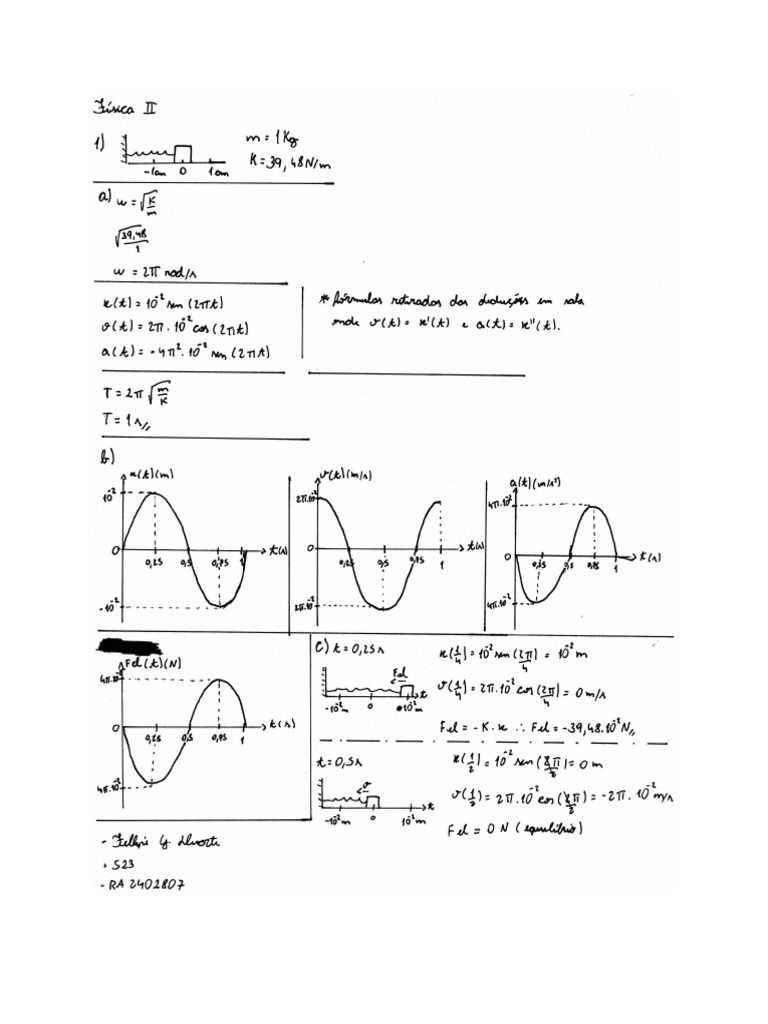 Física II
1)
m = 1Kg
K = 39,48 N/m
-1cm 0 1cm
a) w = √K/m
√39,48/1
w = 2π rad/s
x(t) = 10⁻² sen (2πt)
v(t) = 2π.10⁻² cos (2πt)
a(t) = -4π².10⁻² sen (2πt)
* fórmulas retiradas das deduções em sala
onde v(t) = x'(t) e a(t) = x''(t).
T = 2π √m/K
T = 1s//
b)
x(t)(m)
10⁻²
0 0,25 0,5 0,75 1 t(s)
-10⁻²
v(t)(m/s)
2π.10⁻²
0 0,25 0,5 0,75 1 t(s)
2π.10⁻²
a(t)(m/s²)
4π.10⁻²
0 0,25 0,5 0,75 1 t(s)
4π.10⁻²
Fel(t)(N)
4π.10⁻²
0 0,25 0,5 0,75 1 t(s)
4π.10⁻²
c) t = 0,25s
Fel
-10⁻²m 0 10⁻²m t
x(1/4) = 10⁻² sen (2π/4) = 10⁻² m
v(1/4) = 2π.10⁻² cos (2π/4) = 0 m/s
Fel = -K.x ∴ Fel = -39,48.10⁻² N//
t = 0,5s
v
-10⁻²m 0 10⁻²m t
x(1/2) = 10⁻² sen (2π/2) = 0 m
v(1/2) = 2π.10⁻² cos (2π/2) = -2π.10⁻² m/s
Fel = 0 N (equilíbrio)
- G.
• S23
- RA 2402807